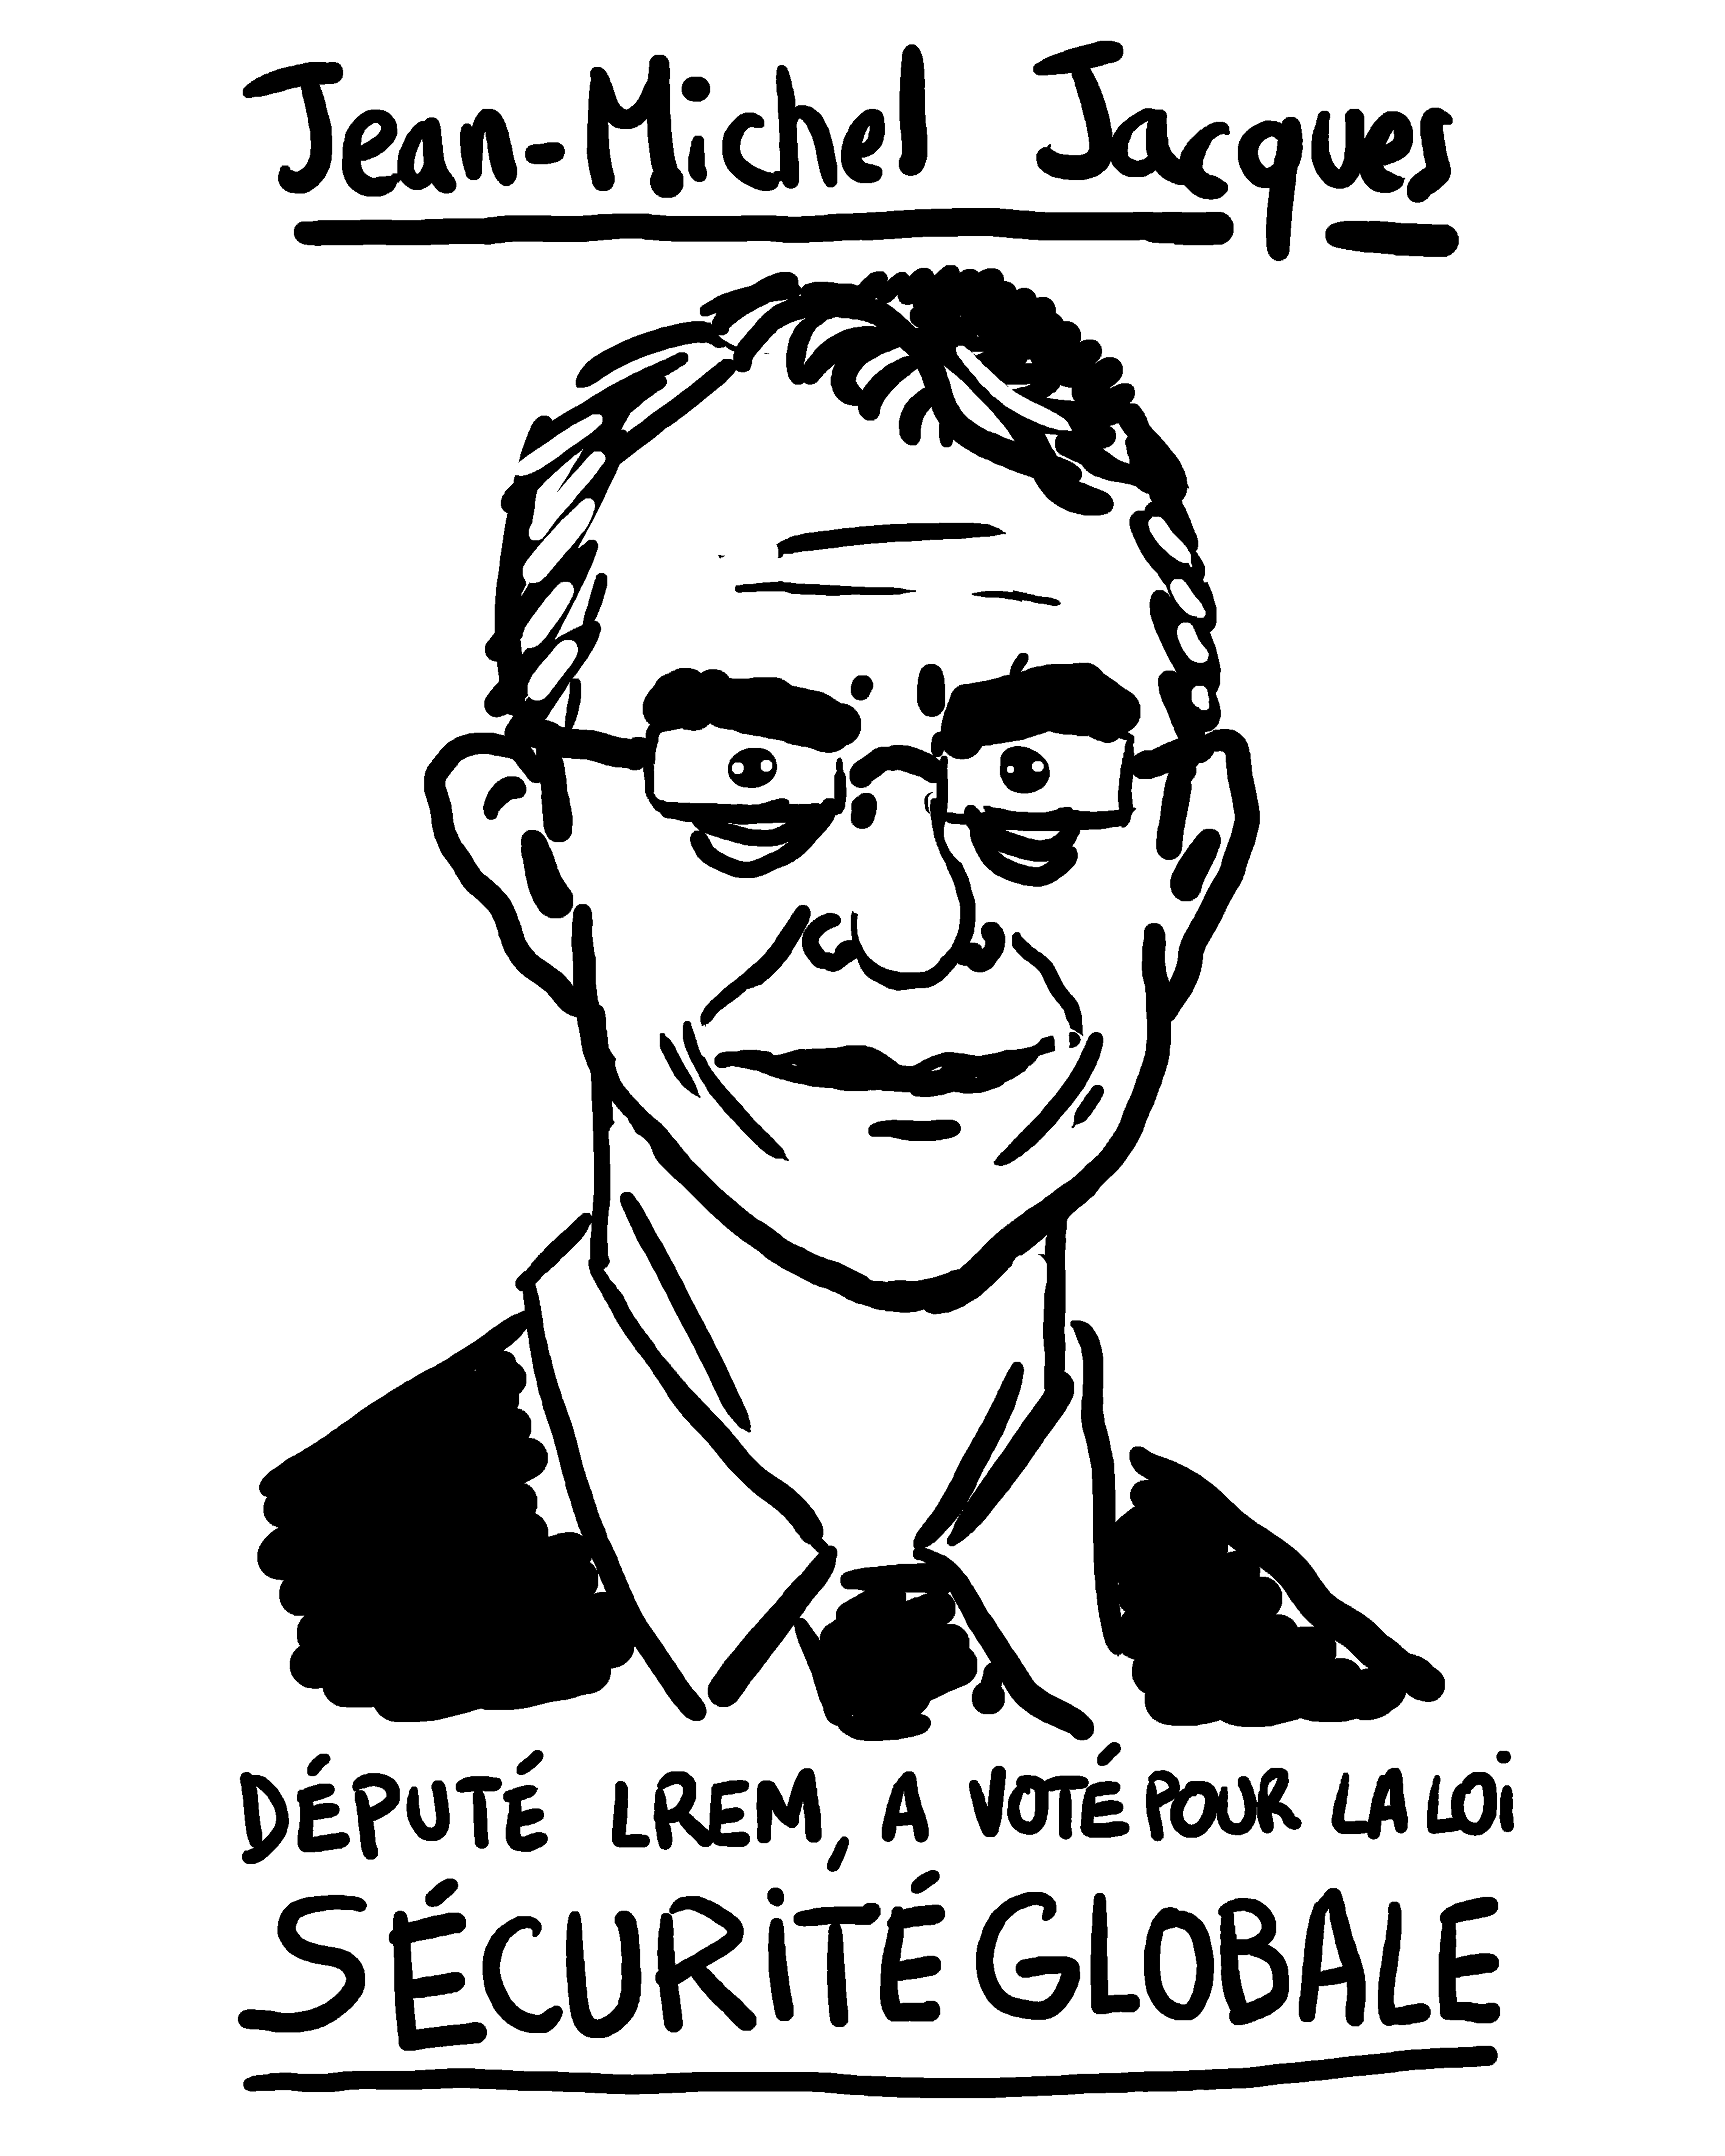 Jean-Michel Jacques
DÉPUTÉ LREM, A VOTÉ POUR LA LOi
SÉCURiTÉ GLOBALE